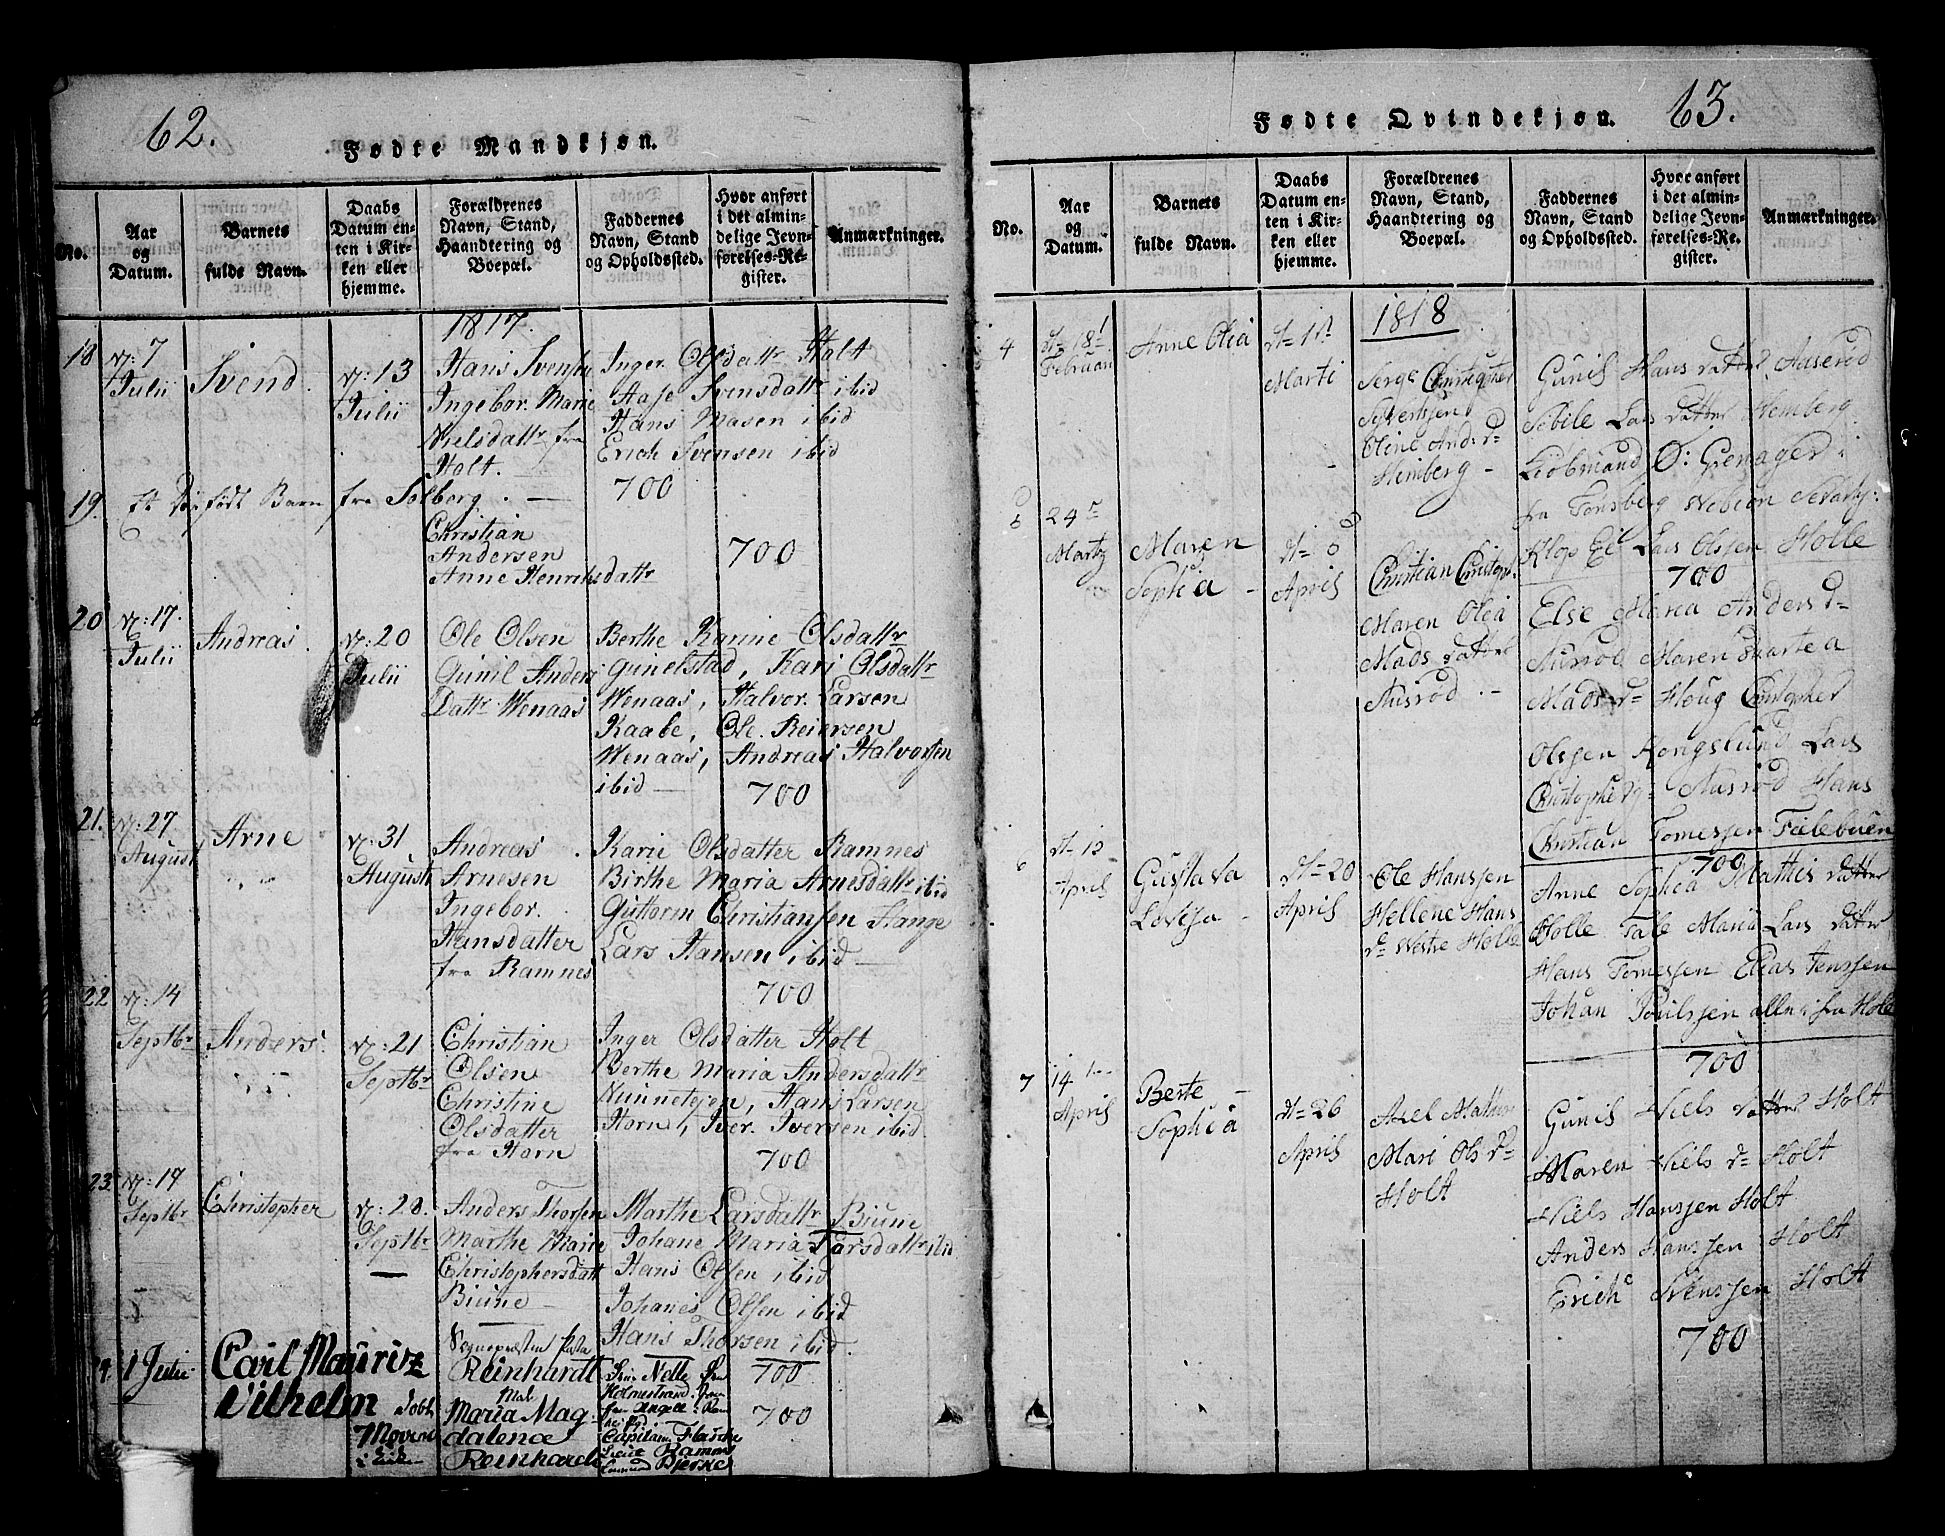 62.
Fødte Mandkjøn.
No.
Aar og Datum.
Barnets fulde Navn.
Daabs Datum enten i Kirken eller hjemme.
Forældrenes Navn, Stand, Haandtering og Boepæl.
Faddernes Navn, Stand og Opholdssted.
Hvor anført i det almindelige Jevnførelses-Register.
Anmærkninger.
1817.
18 7 Julii Svend. 13 Julii
Hans Svensen
Ingebor. Marie
Nielsdattr fra
Holt.
Inger Olsdattr Holt
Aase Svensdattr ibid
Hans Masen ibid
Erich Svensen ibid
700
19. Et født Barn fra Solberg.
Christian
Andersen
Anne Henriksdattr
700
20 17. Julii Andreas. 20 Julii
Ole Olsen
Gunil Anders
Dattr Wenaas
Berthe Karine Olsdattr
Gunelstad, Kari Olsdattr
Wenaas, Halvor Larsen
Kaabe, Ole Reiersen
Wenaas, Andreas Halvorsen
ibid
700
21. 27 August Arne 31 August
Andreas
Arnesen
Ingebor.
Hansdatter
fra Ramnes
Karie Olsdatter Ramnes
Birthe Maria Arnesdattr ibid
Guttorm Christiansen Hange
Lars Hansen ibid
700
22 14 Septbr Anders. 21 Septbr
Christian
Olsen
Christine
Olsdatter
fra Horn
Inger Olsdatter Holt
Berthe Maria Andersdattr
Hans Larsen
Horn, Iver Iversen ibid
700
23. 14 Septbr Christopher 28. Septbr
Anders Thorsen
Marthe Marie
Christophersdatt
Biune
Marthe Larsdattr Biune
Johane Maria Larsdattr ibid
Hans Olsen ibid
Johanes Olsen ibid
Hans Thorsen ibid
700
1 Julii
Carl Mauritz
Vilhelm
7 Novem
Reinhardt
Maria Mag-
dalena
Reinhardt
Holmestrand
Capitain
Bjerke
700
63.
Fødte Qvindekjøn.
No.
Aar og Datum.
Barnets fulde Navn.
Daabs Datum enten i Kirken eller hjemme.
Forældrenes Navn, Stand, Haandtering og Boepæl.
Faddernes Navn, Stand og Opholdssted.
Hvor anført i det almindelige Jevnførelses-Register.
Anmærkninger.
1818
4 18 Februari Anne Olia 1 Marti
Christopher
Sivertsen
Oline Anders d
Hemberg
Gunil Hans datter Aaserød
Sibile Lars datter Hemberg
fra Tønsberg
Lars Olsen Holle
700
24 Marty Maren
Sophia
April
Christian Christoph
Maren Olia
Mads datter
Ausrød
Else Maria Anders d
Ausrød Maren
Mads d Houg Christopher
Olssen Kongslund Lars
Ausrød Hans
Christian Tomessen
700
6 12 April Gustava
Lovisa
20 April
Ole Hanssen
Hellene Hans
d Westre Holle
Anne Sophia Mathis datter
Holle Tale Maria Lars datter
Hans Tomessen Elias Jenssen
Johan Poulssen alle fra Holle
700
7 14 April Berte
Sophia
26 April
Axel
Mari Ols d
Holt
Gunil Niels datter Holt
Maren Niels d Holt
Niels Hanssen Holt
Anders Hanssen Holt
Erich Svenssen Holt
700